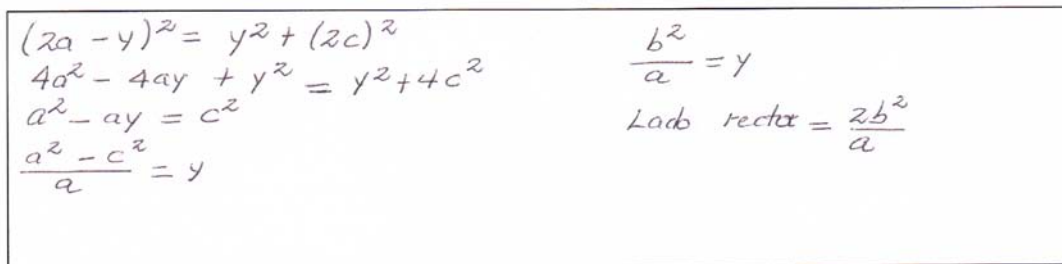 (2a - y)² = y² + (2c)²
4a² - 4ay + y² = y² + 4c²
a² - ay = c²
\frac{a² - c²}{a} = y
\frac{b²}{a} = y
Lado rector = \frac{2b²}{a}